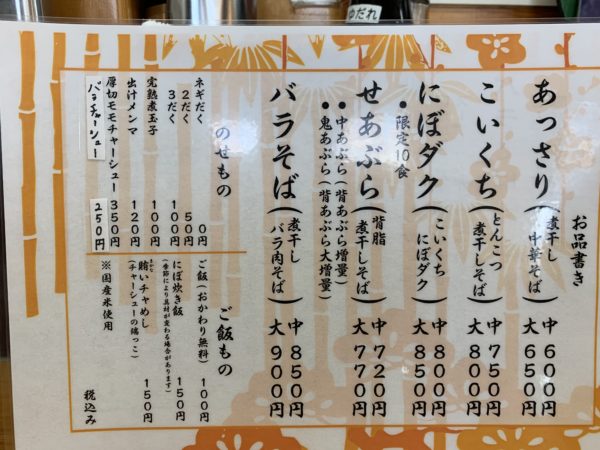 ゆだれ
お品書き
あっさり(煮干し中華そば) 中 600円 大 650円
こいくち(とんこつ煮干しそば) 中 750円 大 800円
にぼダク(こいくちにぼダク) 中 800円 大 850円
●限定10食
せあぶら(背脂煮干しそば) 中 720円 大 770円
●中あぶら(背あぶら増量)
●鬼あぶら(背あぶら大増量)
バラそば(煮干しバラ肉そば) 中 850円 大 900円
のせもの
ネギだく 0円
2だく 50円
3だく 100円
完熟煮玉子 100円
出汁メンマ 120円
厚切モモチャーシュー 350円
バラチャーシュー 250円
ご飯もの
ご飯(おかわり無料) 100円
にぼ炊き飯 150円
(季節により具材が変わる場合があります)
賄いチャめし 150円
(チャーシューの端っこ)
※国産米使用
税込み